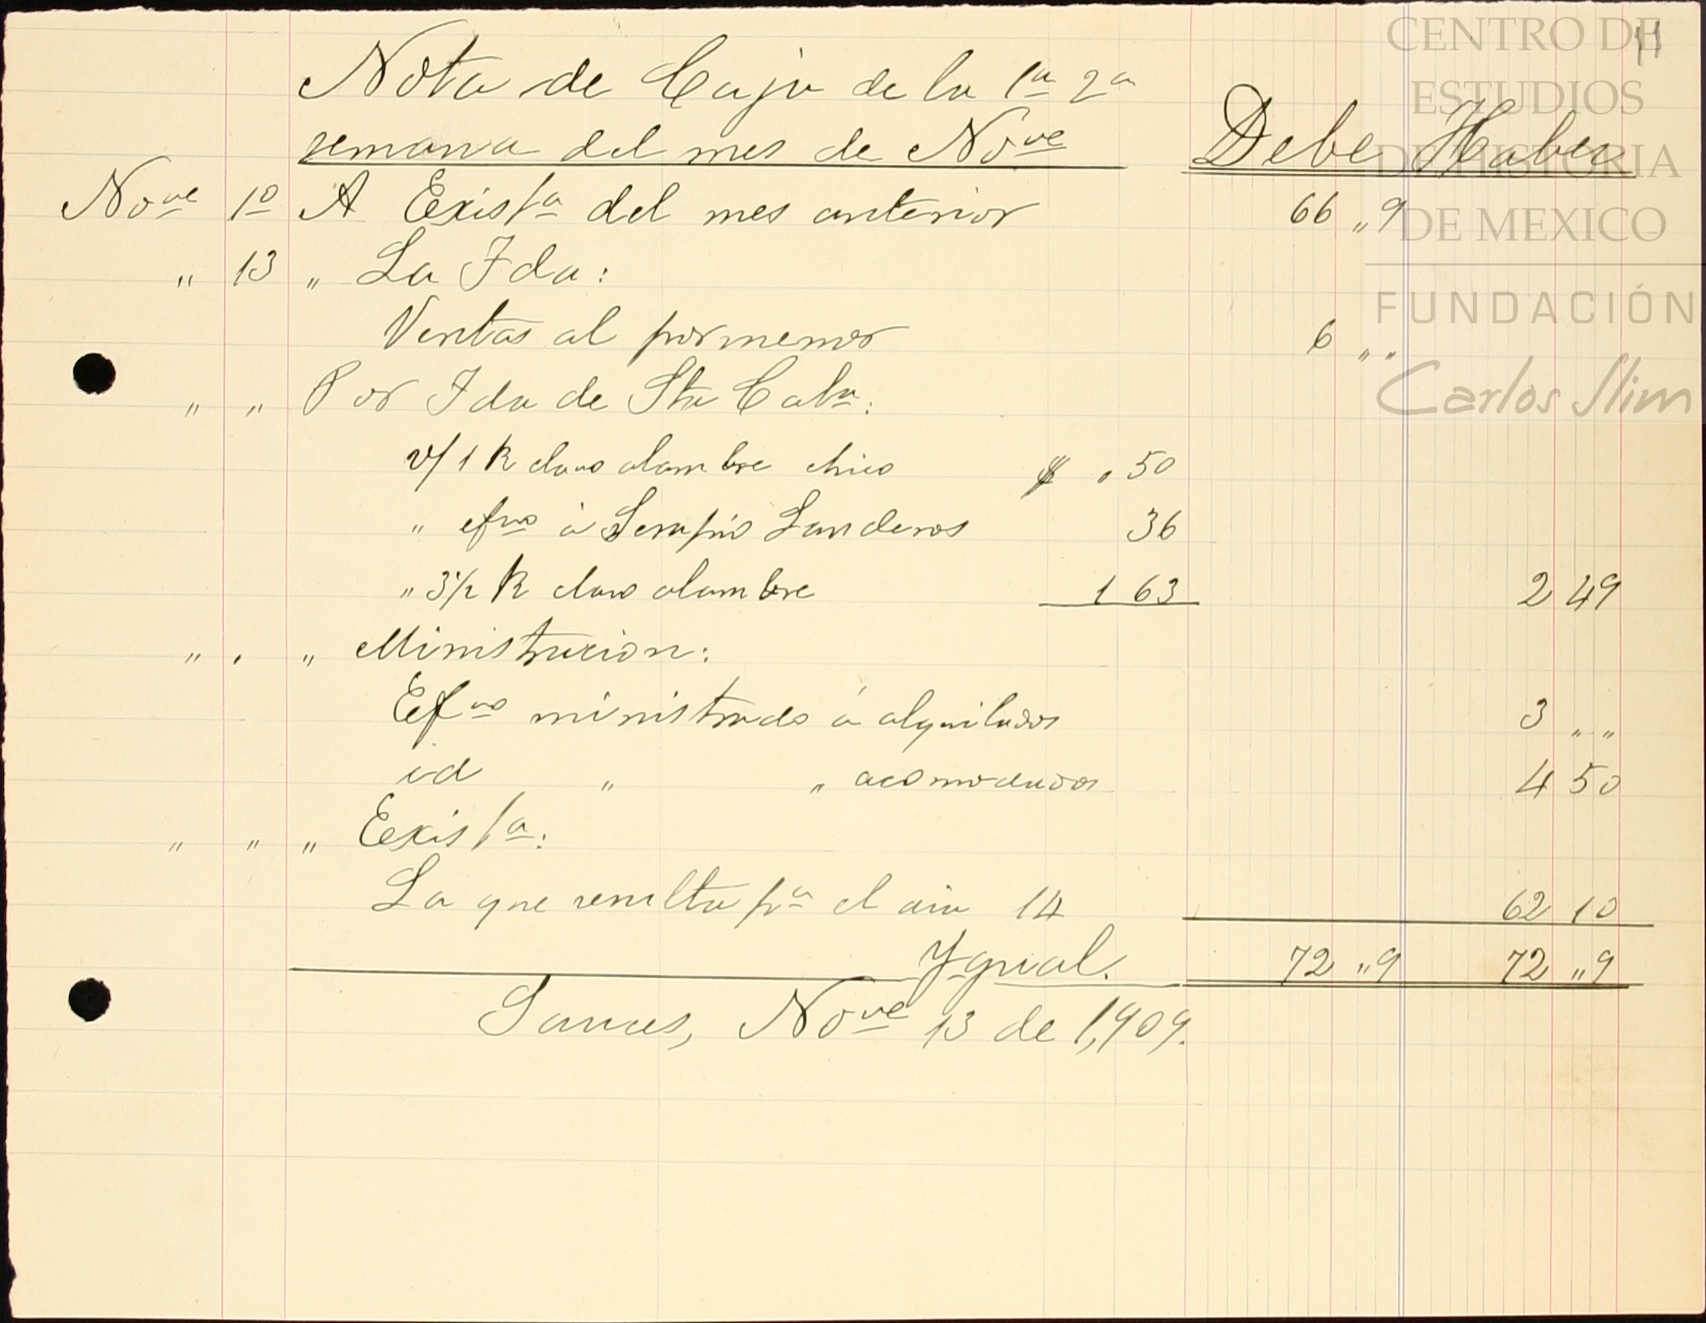 11
Nota de Caja de la 1a 2a
semana del mes de Nove Debe Haber
Nove 1o A Exista del mes anterior 66 „9
„ 13 „ La Fda:
Ventas al pormenor 6 „„
„ „ Por Fda de Sta Cata:
v/ 1 K clavo alambre chico $ „ 50
„ efvo á Serapio Landeros 36
„ 3 1/2 K clavo alambre 1 63 2 49
„ „ „ Ministracion:
Efvo ministrado á alquilados 3 „„
id „ „ acomodados 4 50
„ „ „ Exista:
La que resulta pa el dia 14 62 10
Ygual. 72 „9 72 „9
Sauces, Nove 13 de 1,909.
CENTRO DE
ESTUDIOS
DE HISTORIA
DE MEXICO
FUNDACIÓN
Carlos Slim